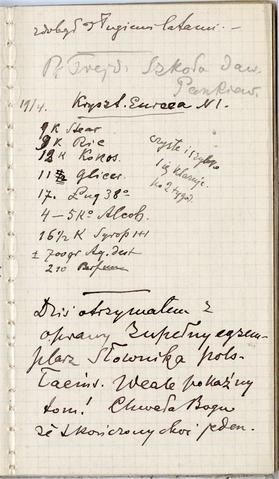 zdobył długiemi latami. —
P. Frejd. Szkoła daw.
Pankiew.
19/4. Kryszt. Eureca N 1.
9 K Stear
9 K Ric
12 K Kokos.
11 Glicer.
17. Lug 38°
4–5 K° Alcoh.
16½ K Syrop 1+1
± 700gr Aq. dest
210 Parfum
czyste i
się klaruje.
Dziś otrzymałem z
oprawy zupełny egzem-
plarz Słownika pols-
łacińs. Wcale pokaźny
tom! Chwała Bogu
że skończony choć jeden.